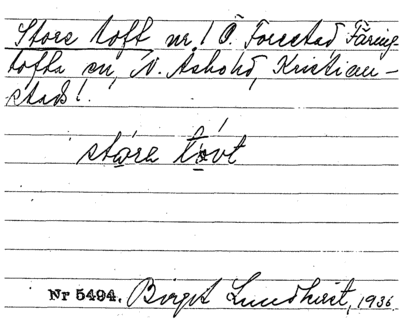 Store toft nr. 1 Ö. Forestad Färing-
tofta sn, N. Åsbohd, Kristian-
stads l.
stóra tóvt
Nr 5494. Birgit Lundkvist, 1936.